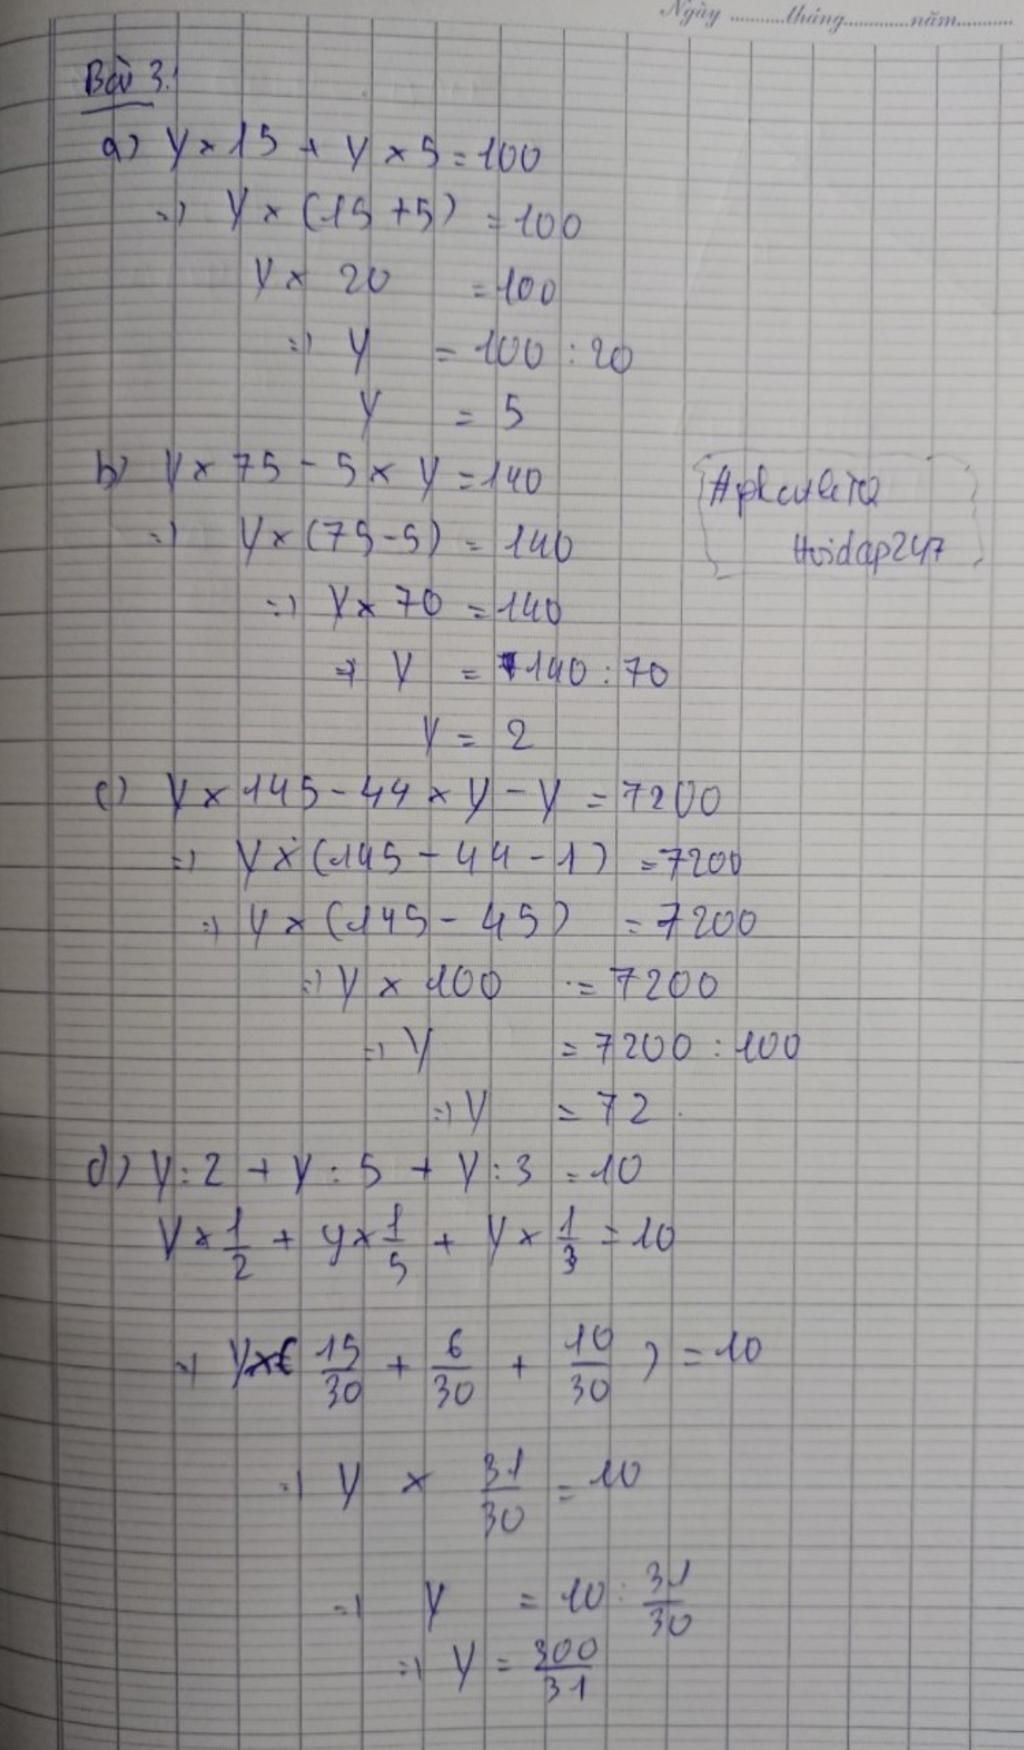 Ngày ..........tháng............năm..........
Bài 3.
a) y × 15 + y × 5 = 100
=> y × (15 + 5) = 100
y × 20 = 100
=> y = 100 : 20
y = 5
b) y × 75 - 5 × y = 140
=> y × (75 - 5) = 140
=> y × 70 = 140
=> y = 140 : 70
y = 2
#hoidap247
c) y × 145 - 44 × y - y = 7200
=> y × (145 - 44 - 1) = 7200
=> y × (145 - 45) = 7200
=> y × 100 = 7200
=> y = 7200 : 100
=> y = 72
d) y : 2 + y : 5 + y : 3 = 10
y × 1/2 + y × 1/5 + y × 1/3 = 10
=> y × ( 15/30 + 6/30 + 10/30 ) = 10
=> y × 31/30 = 10
=> y = 10 : 31/30
=> y = 300/31